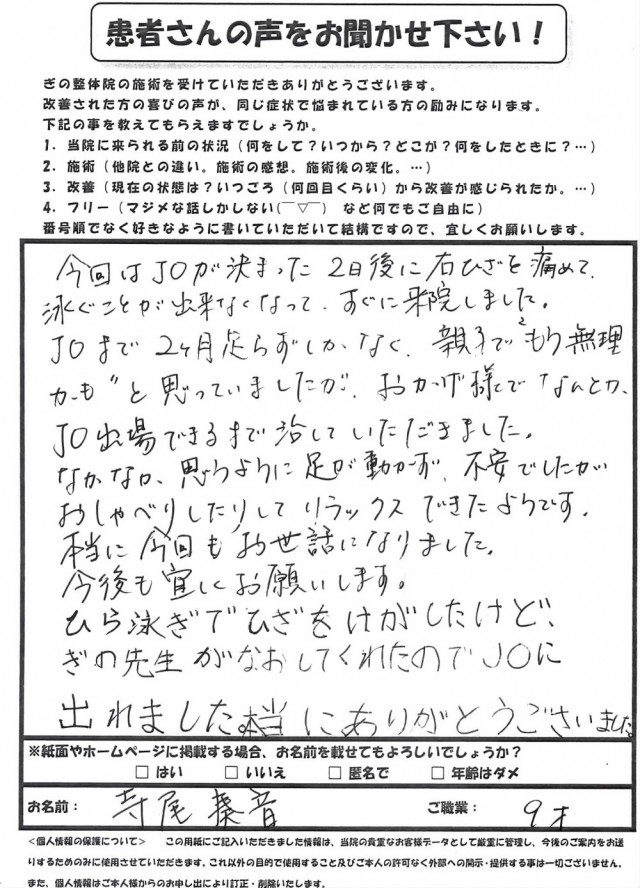 患者さんの声をお聞かせ下さい！
ぎの整体院の施術を受けていただきありがとうございます。
改善された方の喜びの声が、同じ症状で悩まれている方の励みになります。
下記の事を教えてもらえますでしょうか。
1．当院に来られる前の状況（何をして？いつから？どこが？何をしたときに？…）
2．施術（他院との違い。施術の感想。施術後の変化。…）
3．改善（現在の状態は？いつごろ（何回目くらい）から改善が感じられたか。…）
4．フリー（マジメな話しかしない(￣▽￣)　など何でもご自由に）
番号順でなく好きなように書いていただいて結構ですので、宜しくお願いします。
今回はJOが決まった2日後に右ひざを痛めて、
泳ぐことが出来なくなって、すぐに来院しました。
JOまで2ヶ月足らずしかなく、親子で〝もう無理
かも〟と思っていましたが、おかげ様でなんとか、
JO出場できるまで治していただきました。
なかなか、思うように足が動かず、不安でしたが
おしゃべりしたりして リラックスできたようです。
本当に今回もお世話になりました。
今後も宜しくお願いします。
ひら泳ぎでひざをけがしたけど、
ぎの先生がなおしてくれたのでJOに
出れました。本当にありがとうございました
※紙面やホームページに掲載する場合、お名前を載せてもよろしいでしょうか？
□ はい　□ いいえ　□ 匿名で　□ 年齢はダメ
お名前：寺尾 音　ご職業：9才
<個人情報の保護について>　この用紙にご記入いただきました情報は、当院の貴重なお客様データとして厳重に管理し、今後のご案内をお送
りするためのみに使用させていただきます。これ以外の目的で使用すること及びご本人の許可なく外部への開示・提供する事は一切ございません。
また、個人情報はご本人様からのお申し出により訂正・削除いたします。